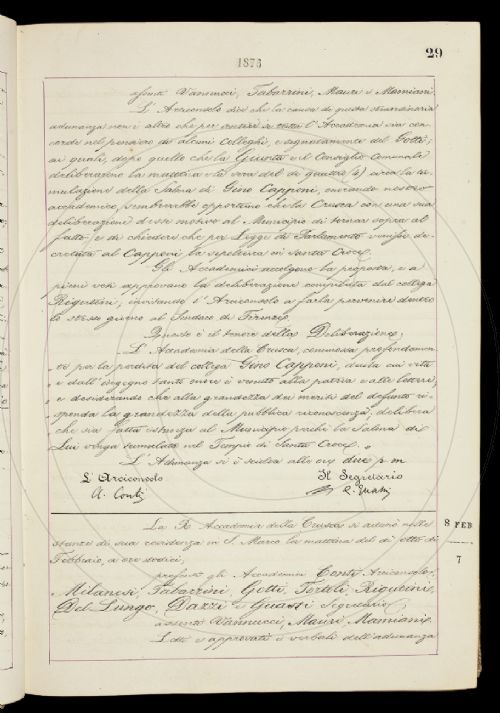 29
1876
assenti Vannucci, Tabarrini, Mauri e Mamiani.
L'Arciconsolo dice che la causa di questa straordinaria
adunanza non è altro che per sentire se tutta l'Accademia sia con-
corde nel pensiero di alcuni Colleghi, e segnatamente del Gotti;
ai quali, dopo quello che la Giunta e il Consiglio Comunale
deliberarono la mattina e la sera del dì quattro circa la tu-
mulazione della Salma di Gino Capponi, onorando nostro
accademico, sembrerebbe opportuno che la Crusca con una sua
deliberazione desse motivo al Municipio di tornar sopra al
fatto, e di chiedere che per Legge di Parlamento venisse de-
cretata al Capponi la sepoltura in Santa Croce.
Gli Accademici accolgono la proposta, e a
pieni voti approvano la deliberazione compilata dal collega
Rigutini, invitando l'Arciconsolo a farla pervenire dentro
lo stesso giorno al Sindaco di Firenze.
Questo è il tenore della Deliberazione:
L'Accademia della Crusca, commossa profondamen-
te per la perdita del collega Gino Capponi, dalla cui vita
e dall'ingegno tanto onore è venuto alla patria e alle lettere;
e desiderando che alla grandezza dei meriti del defunto ri-
sponda la grandezza della pubblica riconoscenza; delibera
che sia fatta istanza al Municipio perchè la Salma di
Lui venga tumulata nel Tempio di Santa Croce.
L'Adunanza si è sciolta alle ore due p.m.
L'Arciconsolo
Il Segretario
A. Conti
C. Guasti
La R. Accademia della Crusca si adunò nelle
stanze di sua residenza in S. Marco la mattina del dì otto di
Febbraio a ore dodici;
8 FEB
7
presenti gli Accademici Conti Arciconsolo,
Milanesi, Tabarrini, Gotti, Tortoli, Rigutini,
Del Lungo, Dazzi e Guasti Segretario;
assenti Vannucci, Mauri, Mamiani.
Letti e approvati i verbali dell'adunanza